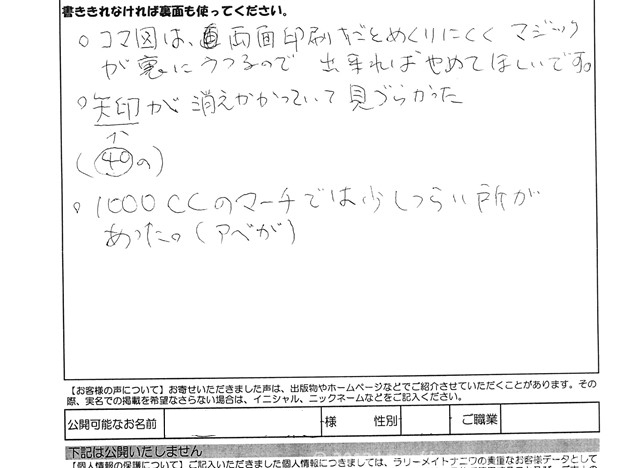 書ききれなければ裏面も使ってください。
○ コマ図は、両面印刷だとめくりにくく マジック
が裏にうつるので 出来ればやめてほしいです。
○ 矢印が 消えかかっていて 見づらかった
↑
(㊵の)
○ 1000CCのマーチでは少しつらい所が
あった。(アベが)
【お客様の声について】お寄せいただきました声は、出版物やホームページなどでご紹介させていただくことがあります。その
際、実名での掲載を希望なさらない場合は、イニシャル、ニックネームなどをご記入ください。
公開可能なお名前 様 性別 ご職業
下記は公開いたしません
【個人情報の保護について】ご記入いただきました個人情報につきましては、ラリーメイトナニワの貴重なお客様データとして